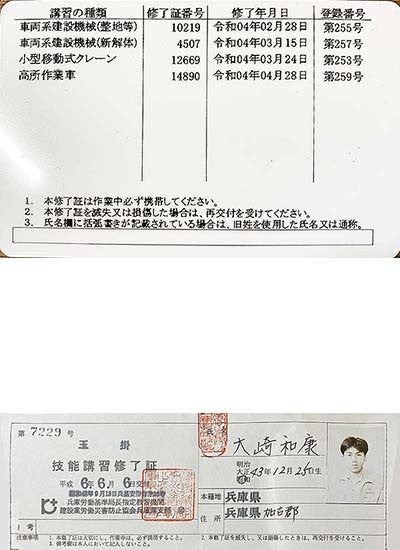 講習の種類 修了証番号 修了年月日 登録番号
車両系建設機械(整地等) 10219 令和04年02月28日 第255号
車両系建設機械(新解体) 4507 令和04年03月15日 第257号
小型移動式クレーン 12669 令和04年03月24日 第253号
高所作業車 14890 令和04年04月28日 第259号
1. 本修了証は作業中必ず携帯してください。
2. 本修了証を滅失又は損傷した場合は、再交付を受けてください。
3. 氏名欄に括弧書きが記載されている場合は、旧姓を使用した氏名又は通称。
第7229号
玉掛
技能講習修了証
平成6年6月6日交付
兵庫労働基準局長指定教習機関
建設業労働災害防止協会兵庫県支部
氏名
大崎和康
明治
大正
昭和
43年12月25日生
本籍地 兵庫県
住所 兵庫県加古郡
備考
注意事項
1. 本修了証は大切にし、作業中は、必ず携帯すること。
2. 本修了証を滅失し、又は損傷したときは、再交付を受けること。
3. 備考欄は本人において記入しないこと。